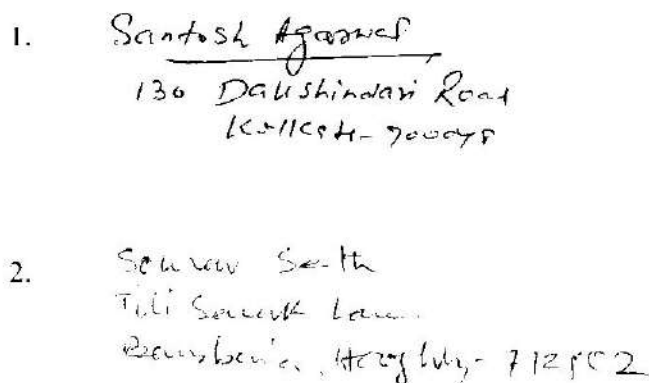 1. Santosh Agarwal
130 Dakshindari Road
Kolkata - 700048
2. Sourav
Lane
Bansberia, Hooghly - 712502